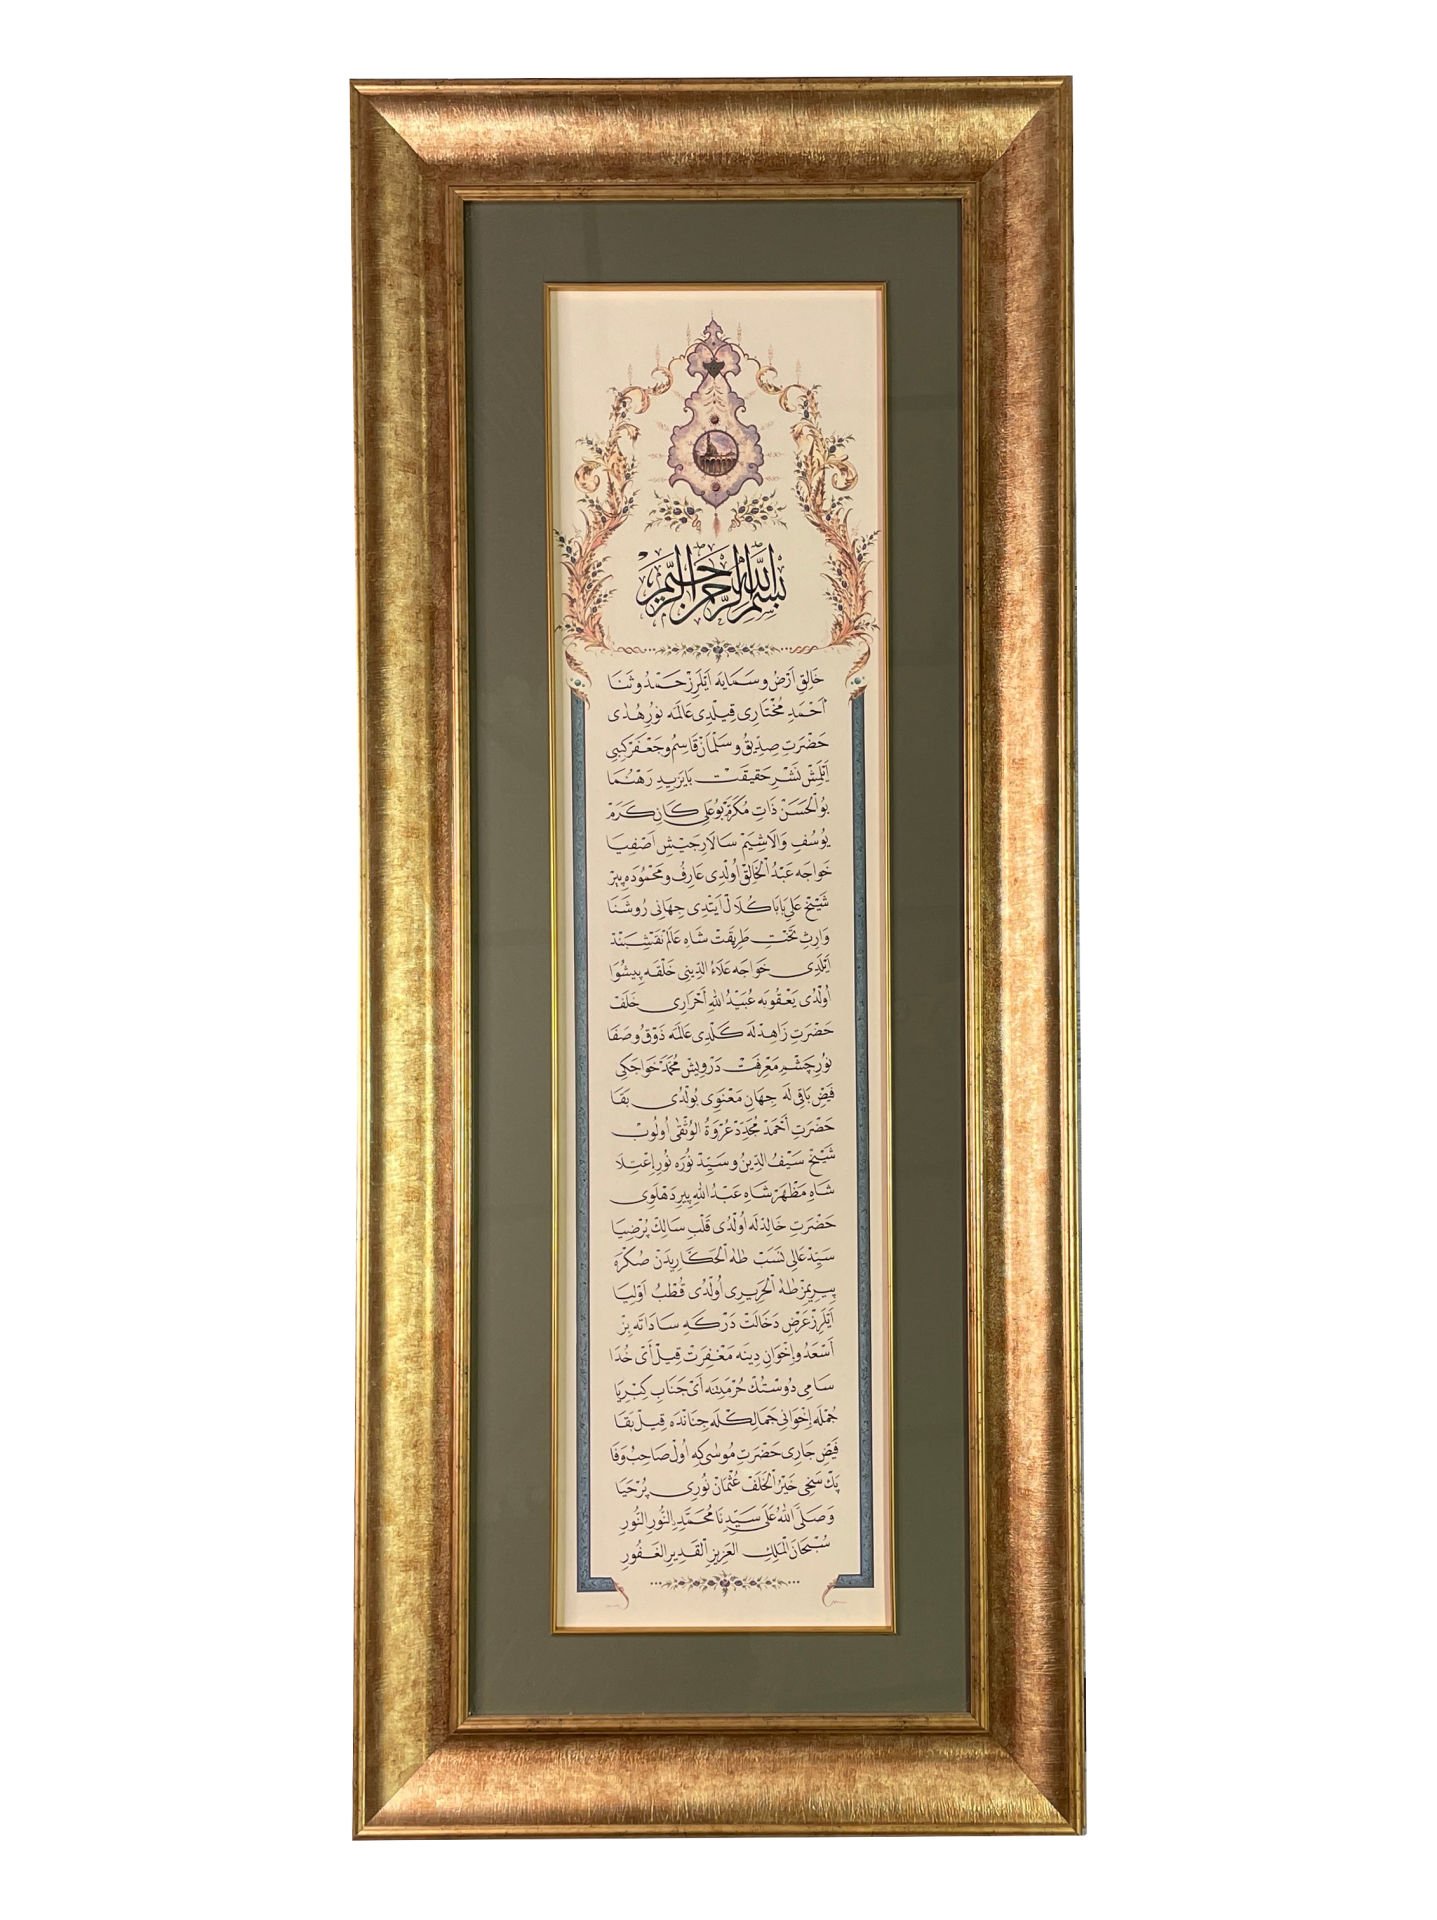 بسم الله الرحمن الرحيم
خَالِقِ اَرْضُ و سَمَايَه اَيْلَرِزْ حَمْدُ و ثَنَا
اَحْمَدِ مُخْتَارِى قِيلْدِى عَالَمَه نُورِ هُدٰى
حَضْرَتِ صِدِّيقُ و سَلْمَانْ قَاسِمُ و جَعْفَرْ كِبِى
اَيْلَمِشْ نَشْرِ حَقِيقَتْ بَايَزِيدِ رَهْنُمَا
بُو الْحَسَنْ ذَاتِ مُكَرَّمْ بُو عَلِى كَانِ كَرَمْ
يُوسُفِ وَالَاشِيَمْ سَالَارِ جَيْشِ اَصْفِيَا
خَواجَه عَبْدُ الْخَالِقْ اُولْدِى عَارِفُ و مَحْمُودَه پِيرْ
شَيْخْ عَلِى بَابَا كُلَالْ اَيْتْدِى جِهَانِى رُوشَنَا
وَارِثِ تَخْتِ طَرِيقَتْ شَاهِ عَالَمْ نَقْشِبَنْدْ
اَيْلَدِى خَوَاجَه عَلَاءُ الدِّينِى خَلْقَه پِيشُوَا
اُولْدُى يَعْقُوبَه عُبَيْدُ اللهِ اَحْرَارِى خَلَفْ
حَضْرَتِ زَاهِدْلَه كَلْدِى عَالَمَه ذَوْقُ و صَفَا
نُورِ چَشْمِ مَعْرِفَتْ دَرْوِيشْ مُحَمَّدْ خَوَاجَكِى
فَيْضِ بَاقِى لَه جِهَانِ مَعْنَوِى بُولْدُى بَقَا
حَضْرَتِ اَحْمَدْ مُجَدِّدْ عُرْوَةُ الْوُثْقٰى اُولُوبْ
شَيْخْ سَيْفُ الدِّينُ و سَيِّدْ نُورَه نُورِ اِعْتِلَا
شَاهِ مَظْهَرْ شَاهِ عَبْدُ اللهِ پِيرِ دَهْلَوِى
حَضْرَتِ خَالِدْلَه اُولْدُى قَلْبِ سَالِكْ پُرْضِيَا
سَيِّدْ عَالِى نَسَبْ طٰهٰ الْحَكَّارِيدَنْ صُكْرَه
پِيرِيمِزْ طٰهٰ الْحَرِيرِى اُولْدُى قُطْبُ اَوْلِيَا
اَيْلَرِزْ عَرْضِ دَخَالَتْ دَرْكَهِ سَادَاتَه بِزْ
اَسْعَدُ و اِخْوَانِ دِينَه مَغْفِرَتْ قِيلْ اَىْ خُدَا
سَامِى دُوسْتُكْ حُرْمَتِنَه اَىْ جَنَابِ كِبْرِيَا
جُمْلَه اِخْوَانِى جَمَالِكْلَه جِنَانْدَه قِيلْ بَقَا
فَيْضِ جَارِى حَضْرَتِ مُوسٰى كِه اُولْ صَاحِبْ وَفَا
پَكْ سَخِى خَيْرُ الْخَلَفْ عُثْمَانْ نُورِى پُرْحَيَا
وَصَلَّى اللهُ عَلٰى سَيِّدِنَا مُحَمَّدٍ النُّورِ النُّورِ
سُبْحَانَ الْمَلِكِ الْعَزِيزِ الْقَدِيرِ الْغَفُورِ